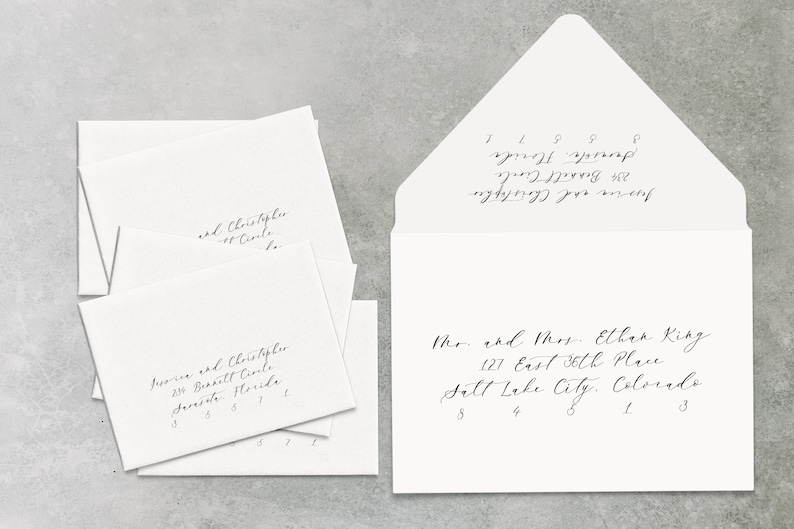 and Christopher
Bennett Circle
Jessica and Christopher
234 Bennett Circle
Sarasota, Florida
3 5 5 7 1
5 7 1
Jessica and Christopher
234 Bennett Circle
Sarasota, Florida
3 5 5 7 1
Mr. and Mrs. Ethan King
127 East 36th Place
Salt Lake City, Colorado
8 4 5 1 3